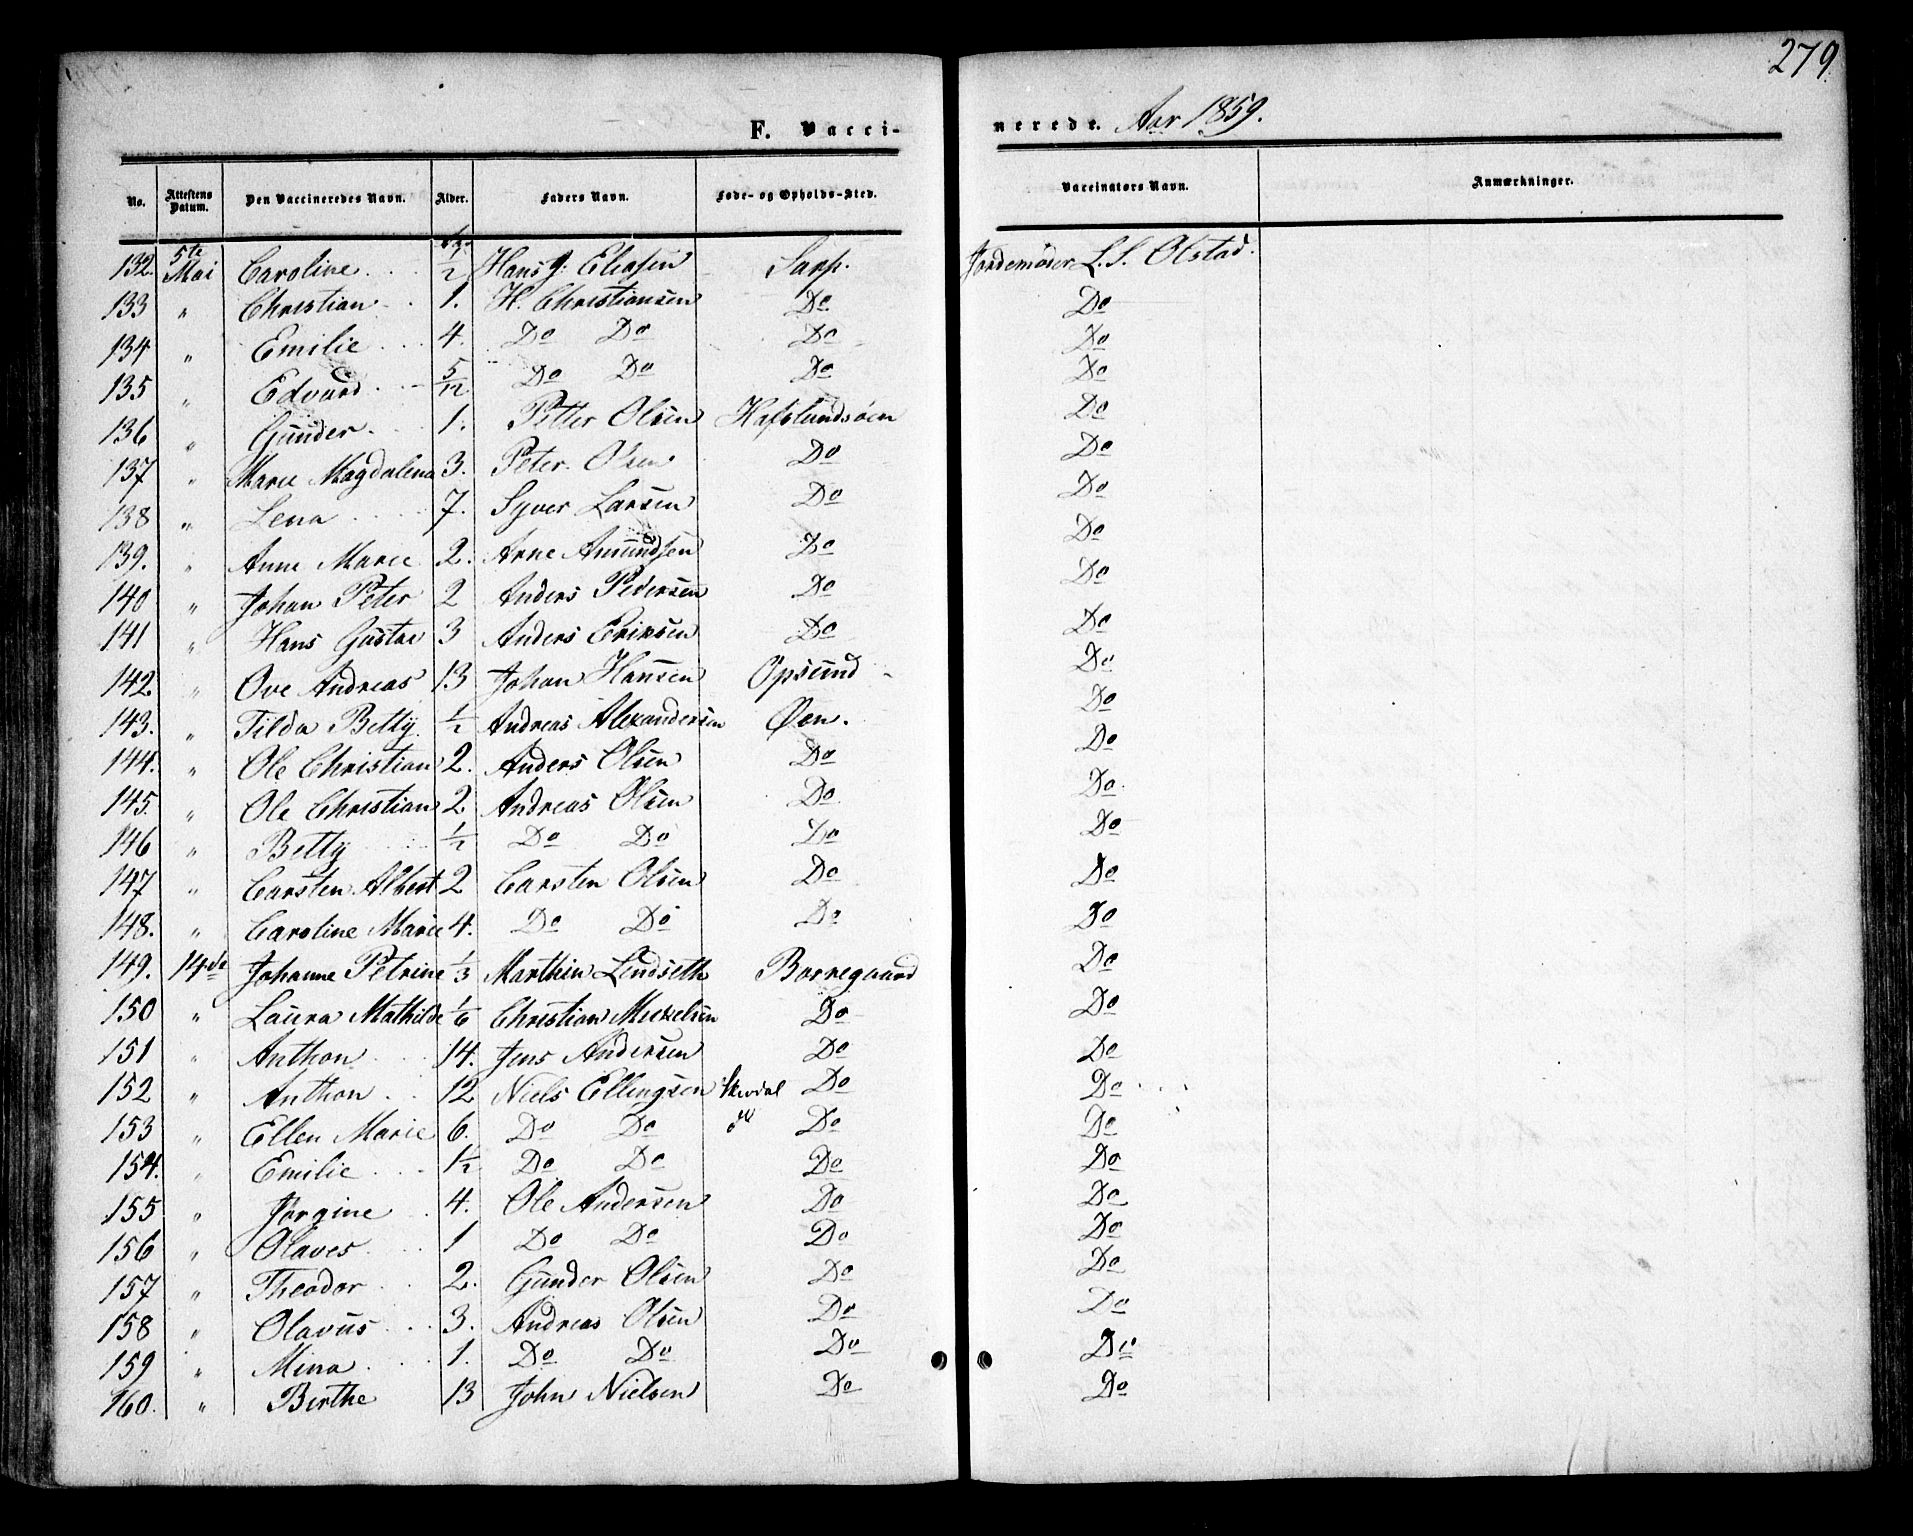 279
F. Vacci-nerede. Aar 1859.
No. Attestens Datum. Den Vaccineredes Navn. Alder. Faders Navn. Føde- og Opholds-Sted. Vaccinators Navn. Anmærkninger.
132. 5te Mai Caroline 1/2 Hans J. Eliasen Sarp. Jordemoder L. S. Olstad.
133 " Christian 1. H. Christiansen Do Do
134 " Emilie 4. Do Do Do Do
135 " Edvard 5/12 Do Do Do Do
136 " Gunder. 1. Petter Olsen Hafslundsøen Do
137 " Marie Magdalena 3. Peter Olsen Do Do
138 " Lena 7. Syver Larsen Do Do
139. " Anne Marie 2. Arne Amundsen Do Do
140 " Johan Peter 2 Anders Pedersen Do Do
141 " Hans Gustav 3 Anders Eriksen Do Do
142. " Ove Andreas 13 Johan Hansen Opsund Do
143. " Tilda Betty 1/2 Andreas Alexandersen Øen. Do
144. " Ole Christian 2. Anders Olsen Do Do
145. " Ole Christian 2. Andreas Olsen Do Do.
146 " Betty 1/2 Do Do Do Do
147 " Carsten Albert 2 Carsten Olsen Do Do
148. " Caroline Marie 4. Do Do Do Do
149. 14de Johanne Petrine 1/3 Marthin Lindseth Borregaard Do
150 " Laura Mathilde 1/6 Christian Mickelsen Do Do
151 " Anthon 14. Jens Andersen Do Do
152 " Anthon 12 Niels Ellingsen Do Do
153 " Ellen Marie 6. Do Do Do Do
154. " Emilie 1 1/2 Do Do Do Do
155 " Jørgine 4. Ole Andersen Do Do
156 " Olaves 1 Do Do Do Do
157 " Theodor 2. Gunder Olsen Do Do
158 " Olavus 3. Andreas Olsen Do Do
159 " Mina 1. Do Do Do Do
160. " Birthe 13 John Nielsen Do Do